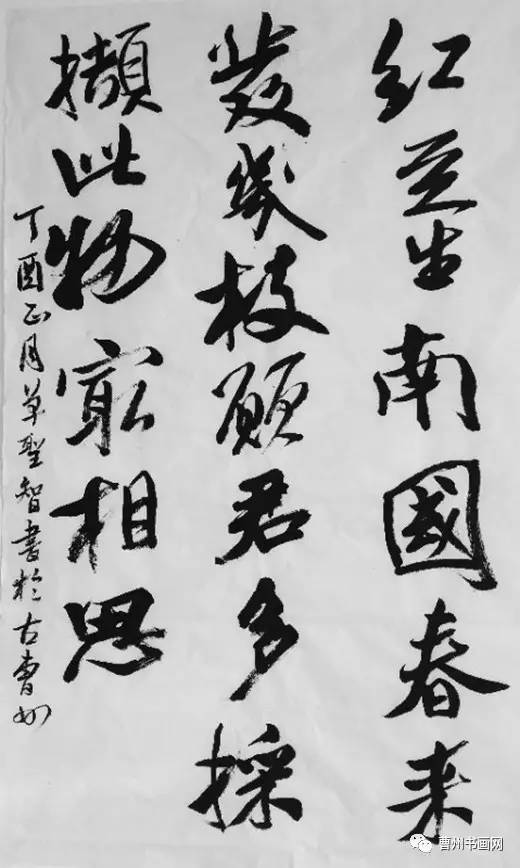 红豆生南國春来
發幾枝願君多採
擷此物寂相思
丁酉正月草聖智書於古曹州
曹州书画网